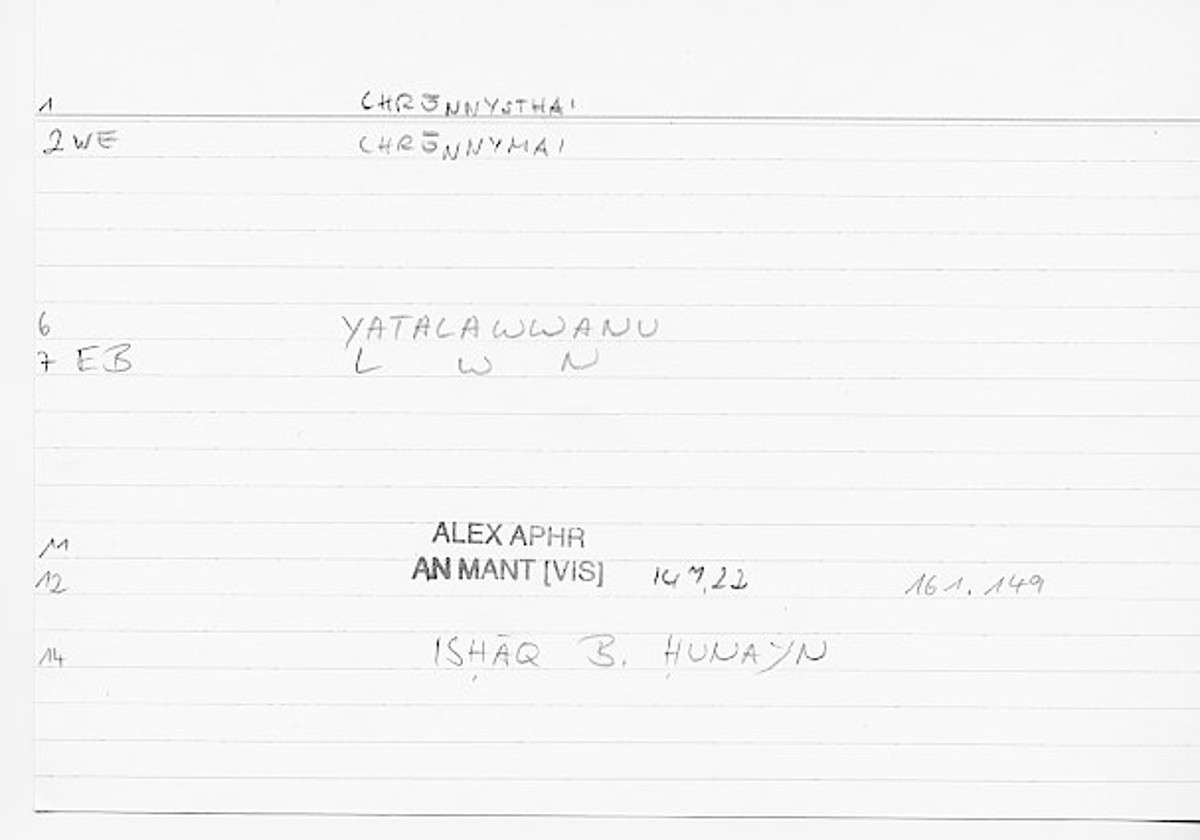 1 CHRŌNNYSTHAI
2 WE CHRŌNNYMAI
6 YATALAWWANU
7 EB L W N
11 ALEX APHR
12 AN MANT [VIS] 161.149
14 ISḤĀQ B. ḤUNAYN